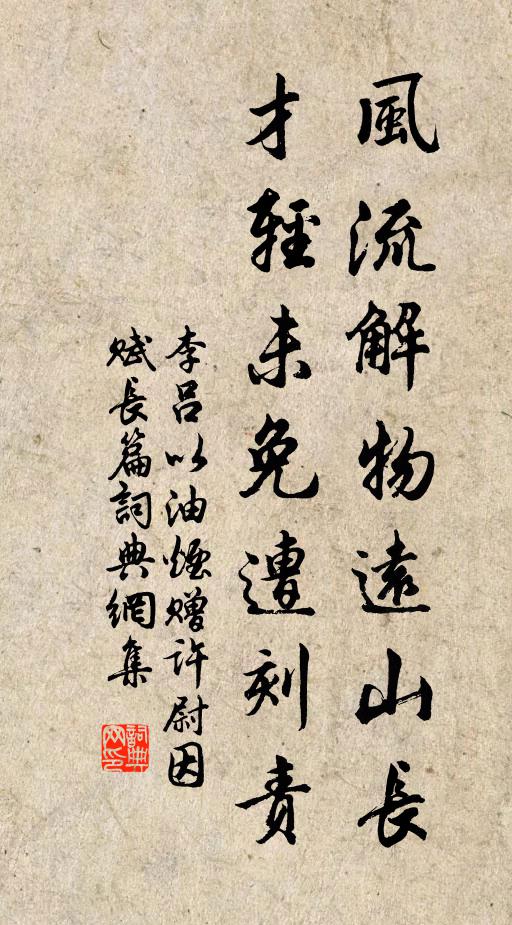 風流解物遠山長
才輕未免遭刻責
李吕以油煙贈許尉因
賦長篇詞典網集
詞典
网印